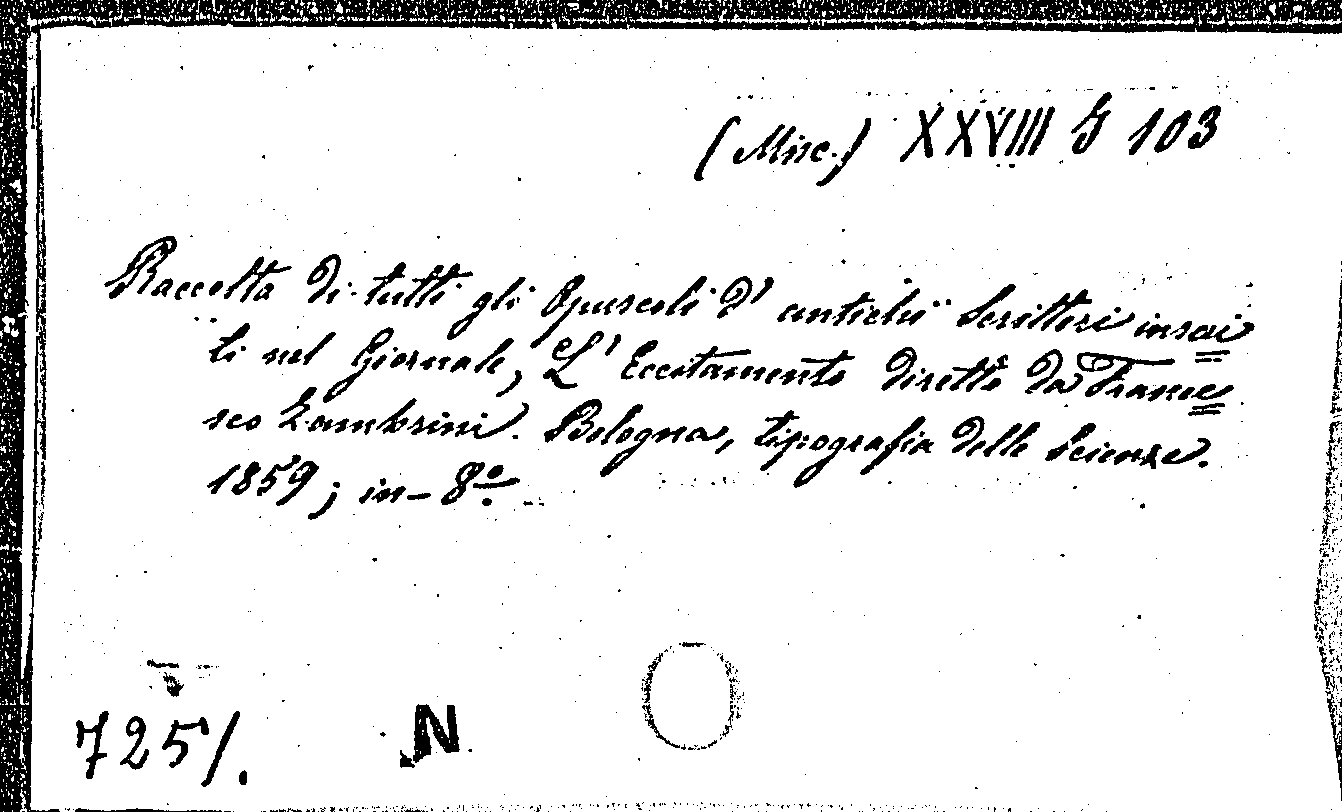 (Misc.) XXVIII G 103
Raccolta di tutti gli Opuscoli d' antichi Scrittori inseri=
ti nel Giornale, L' Eccitamento diretto da France=
sco Zambrini. Bologna, tipografia delle Scienze.
1859; in-8º.
725/.
N